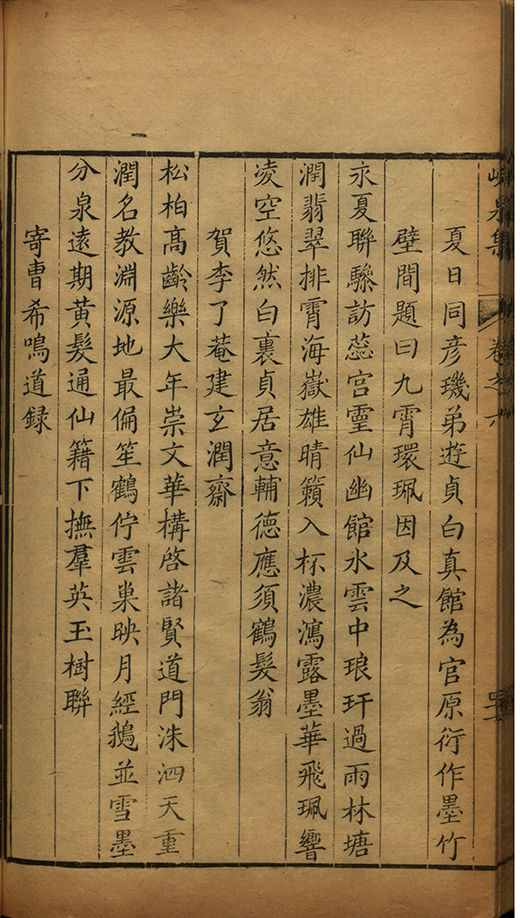 峴泉集
卷之六
夏日同彥璣弟遊貞白真館為官原衍作墨竹
壁間題曰九霄環珮因及之
永夏聯驂訪蕊宮靈仙幽館水雲中琅玕過雨林塘
潤翡翠排霄海嶽雄晴籟入杯濃瀉露墨華飛珮響
凌空悠然白裏貞居意輔德應須鶴髮翁
賀李了菴建玄潤齋
松柏高齡樂大年崇文華構啓諸賢道門洙泗天重
潤名教淵源地最偏笙鶴佇雲巢映月經鵝並雪墨
分泉遠期黃髮通仙籍下撫羣英玉樹聯
寄曹希鳴道録